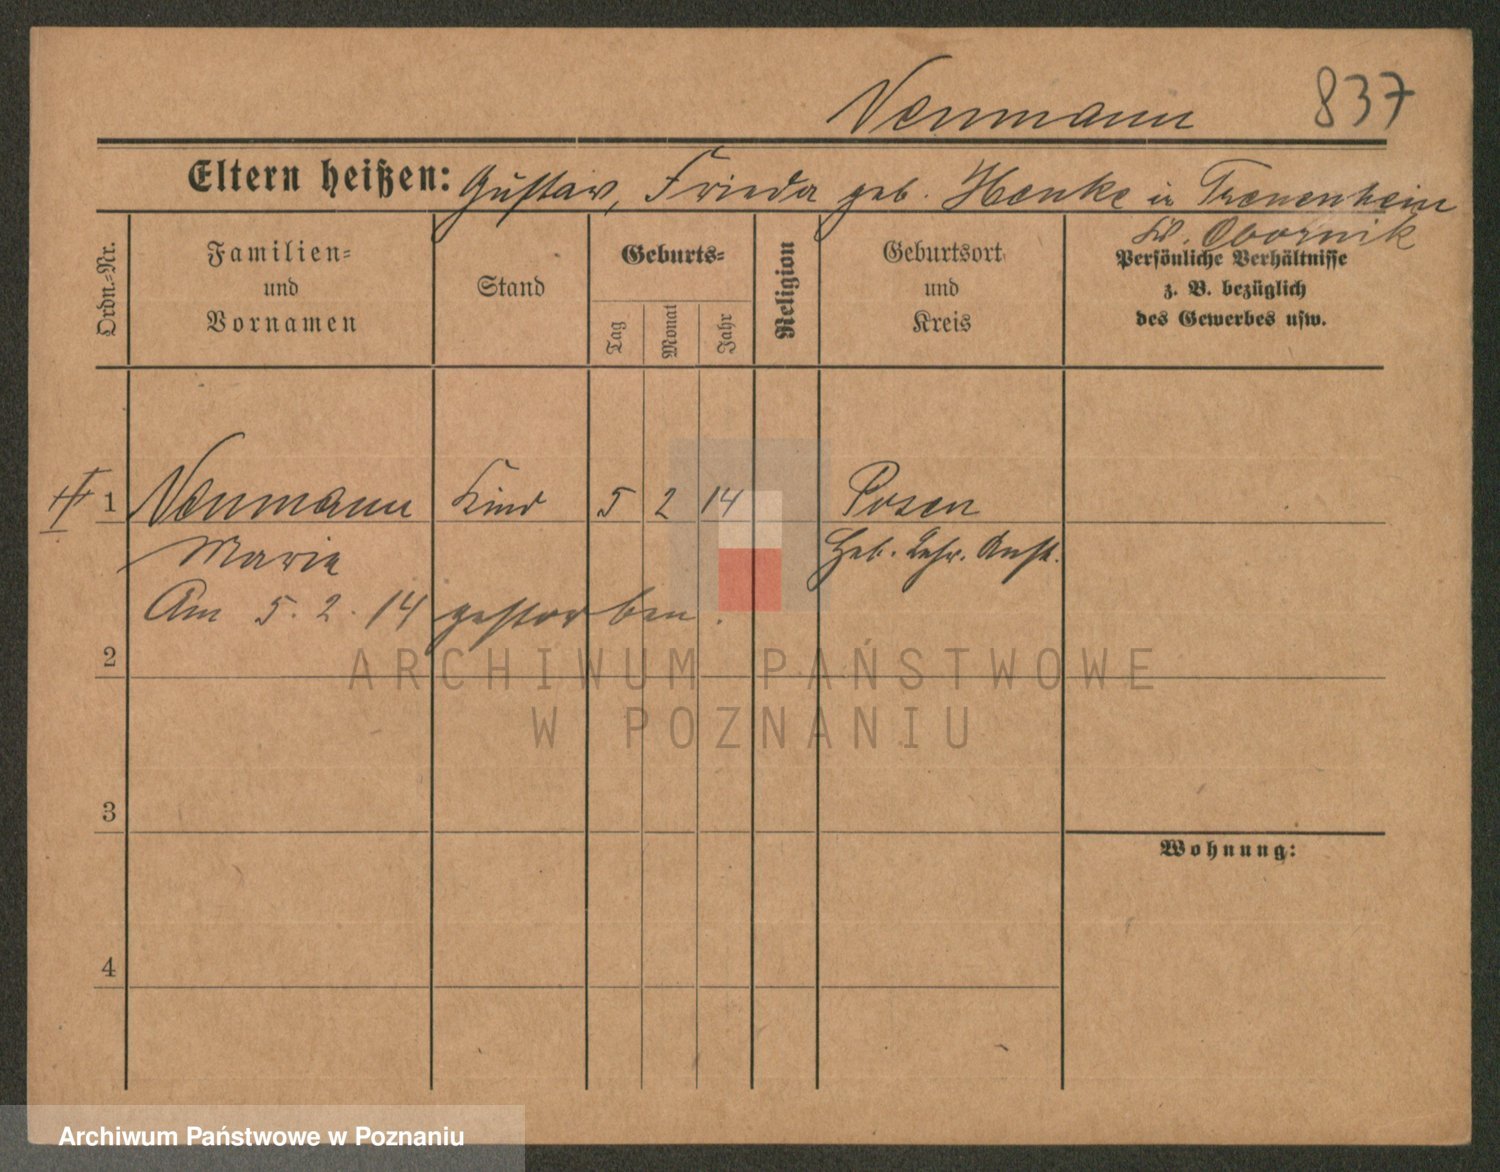 Neumann 837
Eltern heißen: Gustav, Frieda geb. Henke in Treuenheim
Kr. Obornik
Ordn.-Nr.
Familien-
und
Vornamen
Stand
Geburts-
Tag
Monat
Jahr
Religion
Geburtsort
und
Kreis
Persönliche Verhältnisse
z. B. bezüglich
des Gewerbes usw.
1 Neumann Kind 5 2 14 Posen
Marie Heb. Lehr. Anst.
Am 5. 2. 14 gestorben.
2
3
4
Wohnung:
ARCHIWUM PAŃSTWOWE
W POZNANIU
Archiwum Państwowe w Poznaniu